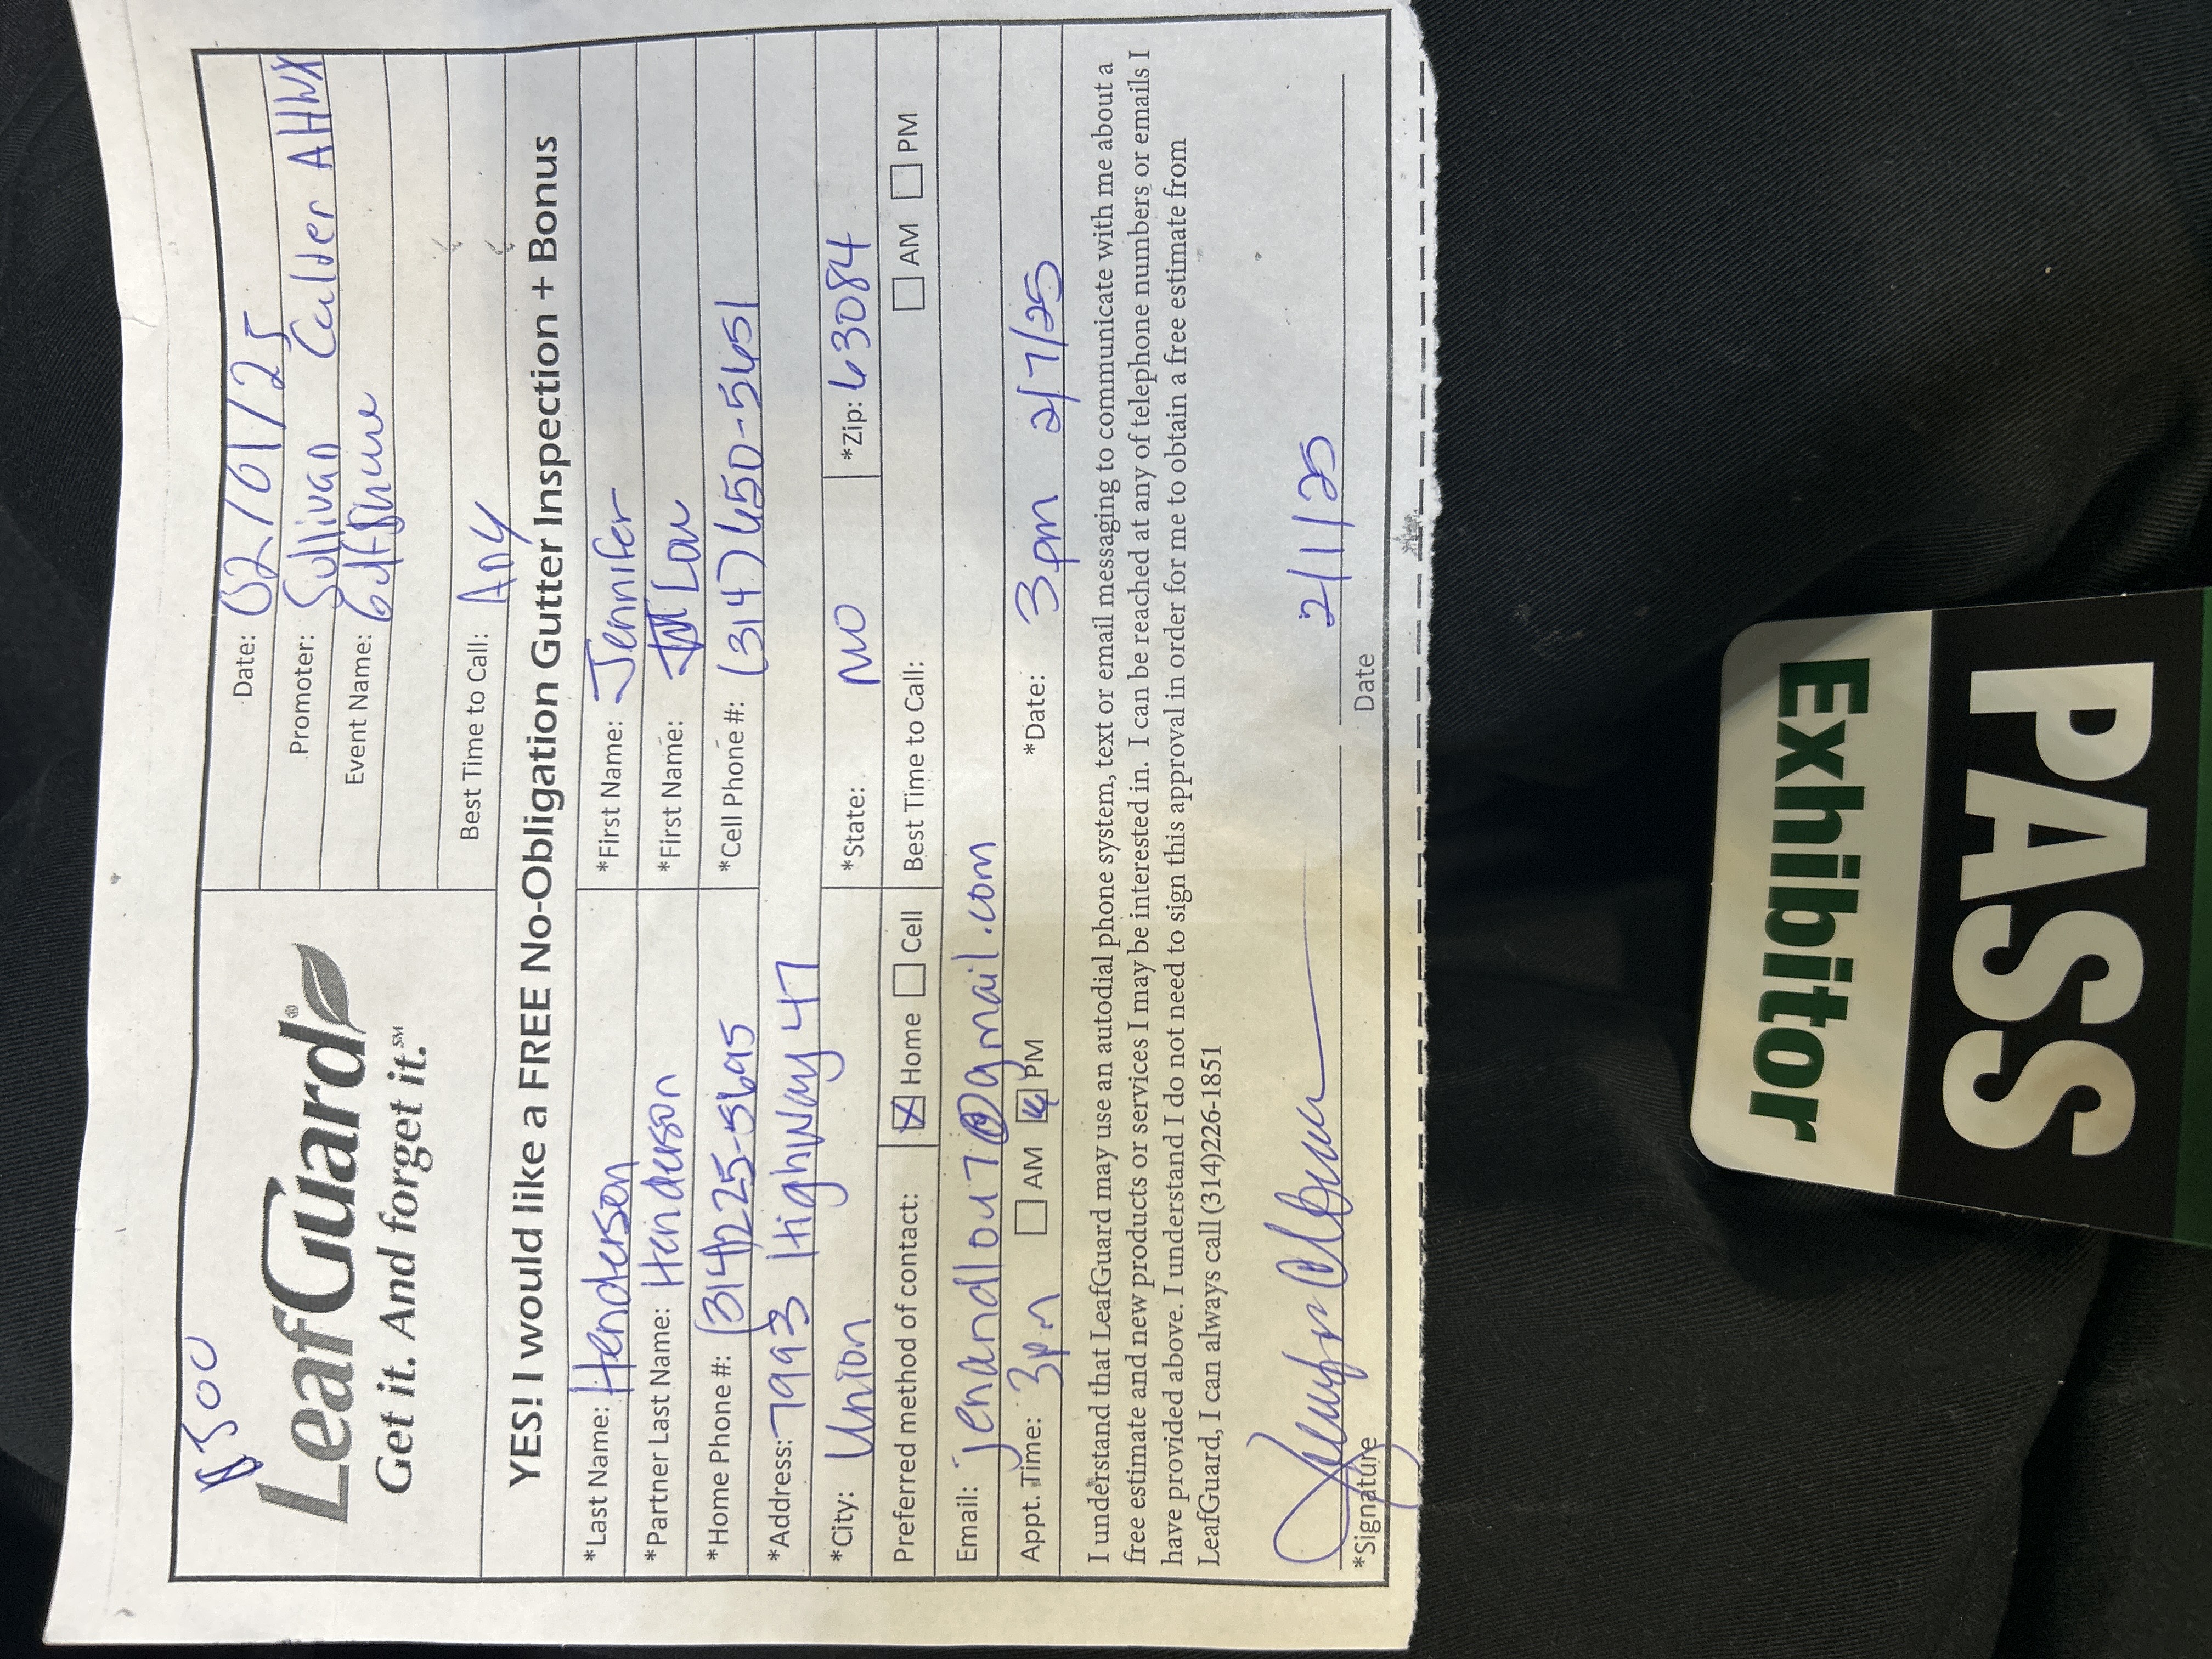 $500
LeafGuard®
Get it. And forget it.℠
Date: 02/01/25
Promoter: Sullivan Calder AHWX
Event Name:
Best Time to Call: Any
YES! I would like a FREE No-Obligation Gutter Inspection + Bonus
*Last Name: Henderson *First Name: Jennifer
*Partner Last Name: Henderson *First Name: Lou
*Home Phone #: (314)225-5695 *Cell Phone #: (314)650-5651
*Address: 7993 Highway 47
*City: Union *State: MO *Zip: 63084
Preferred method of contact: Home Cell Best Time to Call: AM PM
Email: jenandlou7@gmail.com
Appt. Time: 3pm AM PM *Date: 3pm 2/7/25
I understand that LeafGuard may use an autodial phone system, text or email messaging to communicate with me about a
free estimate and new products or services I may be interested in. I can be reached at any of telephone numbers or emails I
have provided above. I understand I do not need to sign this approval in order for me to obtain a free estimate from
LeafGuard, I can always call (314)226-1851
2/1/25
*Signature Date
Exhibitor
PASS